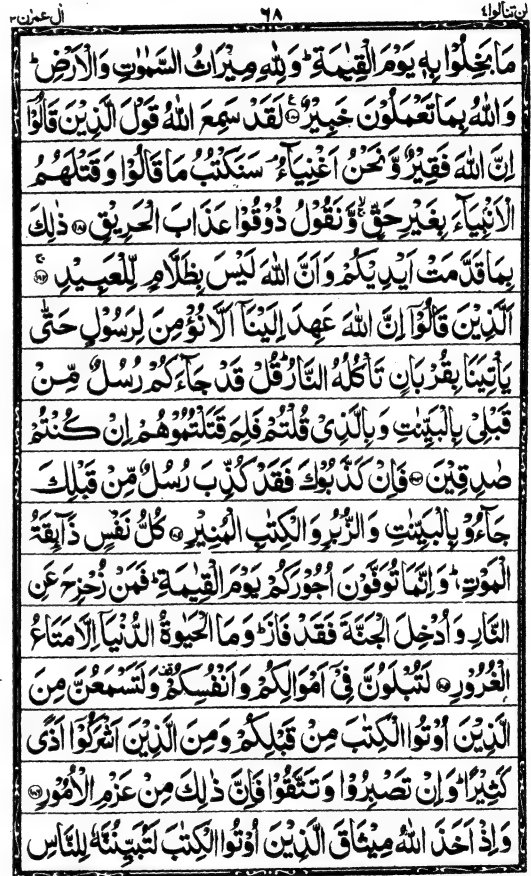 لن تنالوا ٤ ٦٨ اٰل عمرٰن ٣
مَا بَخِلُوْا بِهٖ يَوْمَ الْقِيٰمَةِ ؕ وَلِلّٰهِ مِيْرَاثُ السَّمٰوٰتِ وَالْاَرْضِ ؕ
وَاللّٰهُ بِمَا تَعْمَلُوْنَ خَبِيْرٌ ﴿١٨٠﴾ لَقَدْ سَمِعَ اللّٰهُ قَوْلَ الَّذِيْنَ قَالُوْۤا
اِنَّ اللّٰهَ فَقِيْرٌ وَّنَحْنُ اَغْنِيَآءُ ۘ سَنَكْتُبُ مَا قَالُوْا وَقَتْلَهُمُ
الْاَنْۢبِيَآءَ بِغَيْرِ حَقٍّ ۙ وَّنَقُوْلُ ذُوْقُوْا عَذَابَ الْحَرِيْقِ ﴿١٨١﴾ ذٰلِكَ
بِمَا قَدَّمَتْ اَيْدِيْكُمْ وَاَنَّ اللّٰهَ لَيْسَ بِظَلَّامٍ لِّلْعَبِيْدِ ﴿١٨٢﴾
اَلَّذِيْنَ قَالُوْۤا اِنَّ اللّٰهَ عَهِدَ اِلَيْنَاۤ اَلَّا نُؤْمِنَ لِرَسُوْلٍ حَتّٰى
يَاْتِيَنَا بِقُرْبَانٍ تَاْكُلُهُ النَّارُ ؕ قُلْ قَدْ جَآءَكُمْ رُسُلٌ مِّنْ
قَبْلِىْ بِالْبَيِّنٰتِ وَبِالَّذِىْ قُلْتُمْ فَلِمَ قَتَلْتُمُوْهُمْ اِنْ كُنْتُمْ
صٰدِقِيْنَ ﴿١٨٣﴾ فَاِنْ كَذَّبُوْكَ فَقَدْ كُذِّبَ رُسُلٌ مِّنْ قَبْلِكَ
جَآءُوْ بِالْبَيِّنٰتِ وَالزُّبُرِ وَالْكِتٰبِ الْمُنِيْرِ ﴿١٨٤﴾ كُلُّ نَفْسٍ ذَآىِٕقَةُ
الْمَوْتِ ؕ وَاِنَّمَا تُوَفَّوْنَ اُجُوْرَكُمْ يَوْمَ الْقِيٰمَةِ ؕ فَمَنْ زُحْزِحَ عَنِ
النَّارِ وَاُدْخِلَ الْجَنَّةَ فَقَدْ فَازَ ؕ وَمَا الْحَيٰوةُ الدُّنْيَاۤ اِلَّا مَتَاعُ
الْغُرُوْرِ ﴿١٨٥﴾ لَتُبْلَوُنَّ فِىْۤ اَمْوَالِكُمْ وَاَنْفُسِكُمْ ۟ وَلَتَسْمَعُنَّ مِنَ
الَّذِيْنَ اُوْتُوا الْكِتٰبَ مِنْ قَبْلِكُمْ وَمِنَ الَّذِيْنَ اَشْرَكُوْۤا اَذًى
كَثِيْرًا ؕ وَاِنْ تَصْبِرُوْا وَتَتَّقُوْا فَاِنَّ ذٰلِكَ مِنْ عَزْمِ الْاُمُوْرِ ﴿١٨٦﴾
وَاِذْ اَخَذَ اللّٰهُ مِيْثَاقَ الَّذِيْنَ اُوْتُوا الْكِتٰبَ لَتُبَيِّنُنَّهٗ لِلنَّاسِ